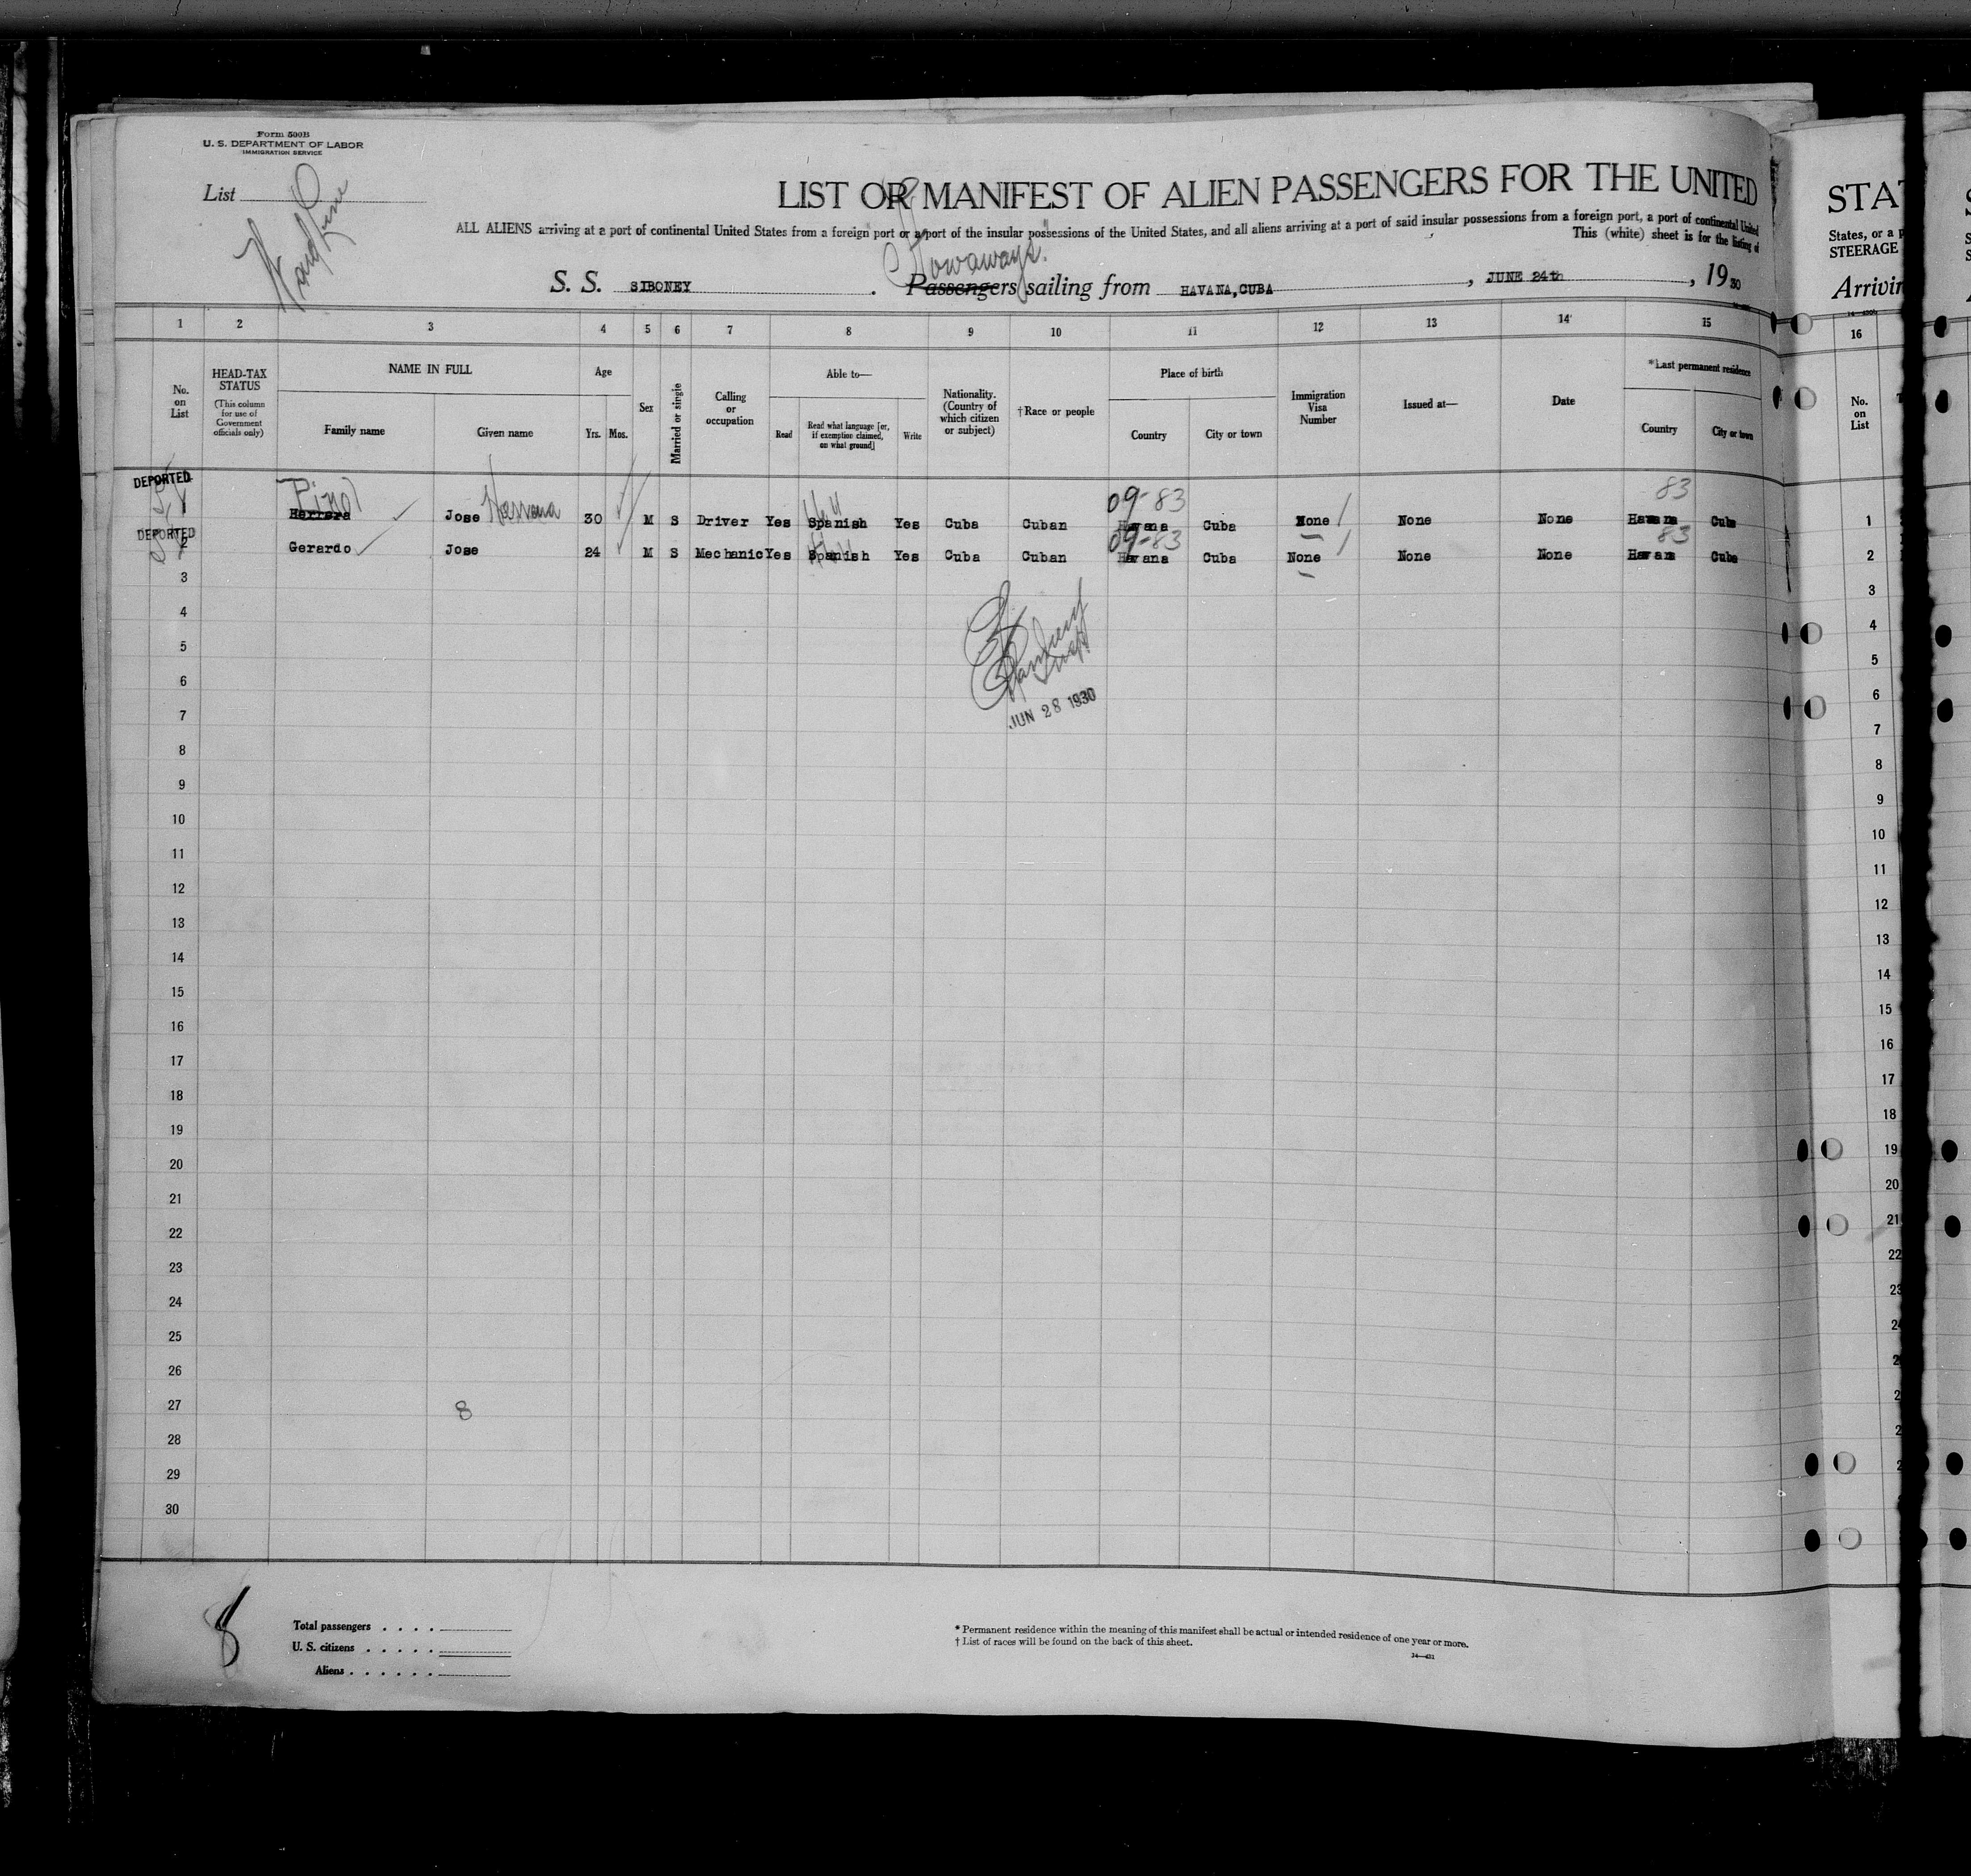 Form 500B
U. S. DEPARTMENT OF LABOR
IMMIGRATION SERVICE
List
Ward Line
LIST OR MANIFEST OF ALIEN PASSENGERS FOR THE UNITED
ALL ALIENS arriving at a port of continental United States from a foreign port or a port of the insular possessions of the United States, and all aliens arriving at a port of said insular possessions from a foreign port, a port of continental United
This (white) sheet is for the listing of
"Stowaways"
S. S. SIBONEY. Passengers sailing from HAVANA,CUBA, JUNE 24th, 1930
1 2 3 4 5 6 7 8 9 10 11 12 13 14 15
No. on List
HEAD-TAX STATUS (This column for use of Government officials only)
NAME IN FULL
Family name Given name
Age
Yrs. Mos.
Sex
Married or single
Calling or occupation
Able to—
Read
Read what language [or, if exemption claimed, on what ground]
Write
Nationality. (Country of which citizen or subject)
†Race or people
Place of birth
Country City or town
Immigration Visa Number
Issued at—
Date
*Last permanent residence
Country City or town
DEPORTED
Pinol 09-83 83
1 Herrera Jose Herrera 30 M S Driver Yes Spanish Yes Cuba Cuban Havana Cuba None None None Havana Cuba
DEPORTED
09-83 83
2 Gerardo Jose 24 M S Mechanic Yes Spanish Yes Cuba Cuban Havana Cuba None None None Havana Cuba
3
4
5
6
7
JUN 28 1930
8
9
10
11
12
13
14
15
16
17
18
19
20
21
22
23
24
25
26
27 8
28
29
30
8
Total passengers
U. S. citizens
Aliens
* Permanent residence within the meaning of this manifest shall be actual or intended residence of one year or more.
† List of races will be found on the back of this sheet.
STAT
States, or a p
STEERAGE
Arrivin
16
No. on List
1
2
3
4
5
6
7
8
9
10
11
12
13
14
15
16
17
18
19
20
21
22
23